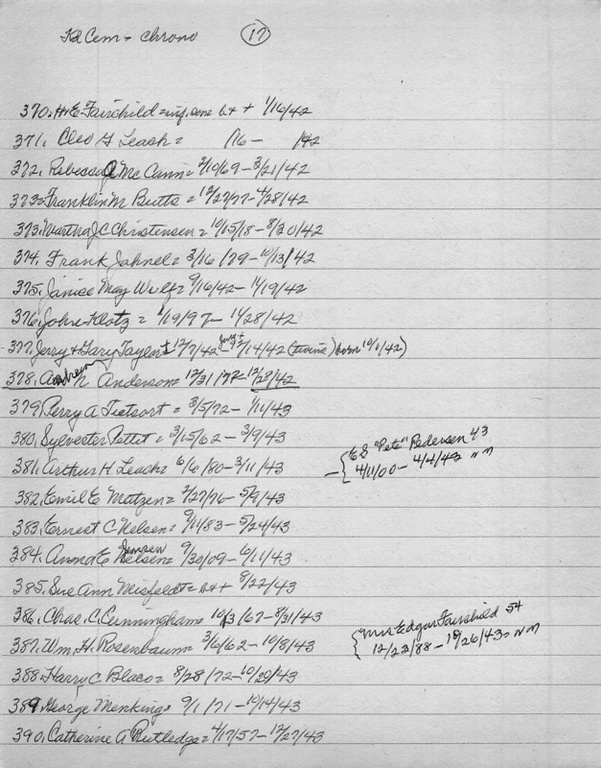 K2 Cem - Chrono 17
370. H.E. Fairchild = inf, one b+ + 1/16/42
371. Cleo G Leach = /16 - /42
372. Rebecca J McCann = 2/10/69 - 3/21/42
373 = Franklin M Butts = 12/27/77 - 4/28/42
373. Martha J C Christensen = 10/15/18 - 8/30/42
374. Frank Jahnel = 3/16/79 - 10/13/42
375. Janice May Wulf = 9/16/42 - 11/19/42
376. John Klotz = 1/19/97 - 11/28/42
377. Jerry + Gary Taylor 12/7/42 - 12/14/42 (twins) born 10/1/42)
378. Andrew N Anderson = 12/31/77 - 12/28/42
379. Perry A Tietsort = 3/5/72 - 1/11/43
380. Sylvester Pettit = 3/15/62 - 3/9/43
381. Arthur H. Leach = 6/6/80 - 3/11/43
{ E S "Pete" Pedersen 43
4/11/00 - 4/4/43 NM
382. Emil E Matzen = 2/27/76 - 5/9/43
383. Ernest C Nelsen = 9/11/83 - 5/24/43
384. Anna E Jensen Nelsen = 9/30/09 - 6/11/43
385. Sue Ann Misfeldt = b+ + 9/22/43
386. Chas. C. Cunningham 10/3/67 - 8/31/43
{ Mrs Edgar Fairchild 54
12/23/88 - 10/26/43 = NM
387. Wm. H. Rosenbaum 3/6/62 - 10/8/43
388. Harry C Blaco = 8/28/72 - 10/29/43
389. George Menking = 9/1/71 - 10/14/43
390. Catherine A Rutledge = 4/17/57 - 12/27/43